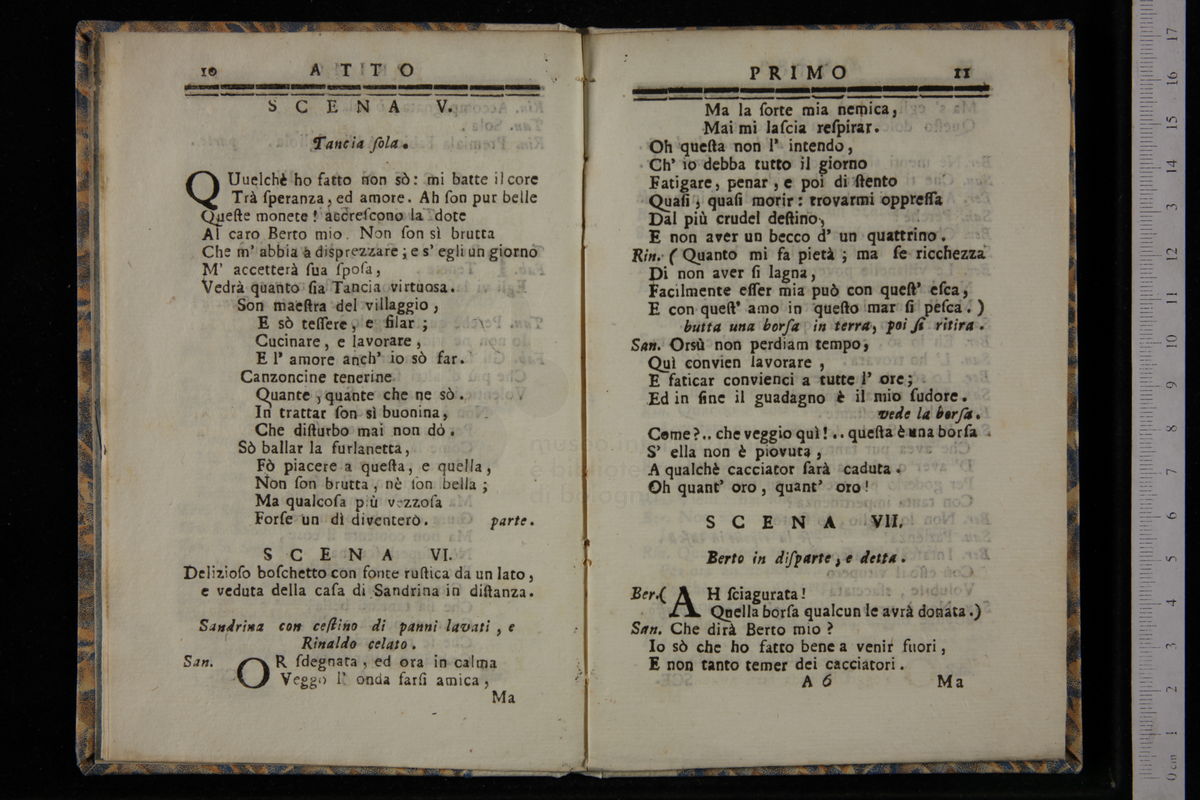 10 ATTO
SCENA V.
Tancia ſola.
QUuelchè ho fatto non sò: mi batte il core
Trà ſperanza, ed amore. Ah ſon pur belle
Queſte monete! accreſcono la dote
Al caro Berto mio. Non ſon sì brutta
Che m' abbia à disprezzare; e s' egli un giorno
M' accetterà ſua ſpoſa,
Vedrà quanto ſia Tancia virtuosa.
Son maeſtra del villaggio,
E sò teſſere, e filar;
Cucinare, e lavorare,
E l' amore anch' io sò far.
Canzoncine tenerine
Quante, quante che ne sò.
In trattar ſon sì buonina,
Che diſturbo mai non dò.
Sò ballar la furlanetta,
Fò piacere a queſta, e quella,
Non ſon brutta, nè ſon bella;
Ma qualcoſa più vezzoſa
Forſe un dì diventerò. parte.
SCENA VI.
Delizioſo boſchetto con fonte ruſtica da un lato,
e veduta della caſa di Sandrina in diſtanza.
Sandrina con ceſtino di panni lavati, e
Rinaldo celato.
San. OR ſdegnata, ed ora in calma
Veggo l' onda farſi amica,
Ma
PRIMO 11
Ma la ſorte mia nemica,
Mai mi laſcia reſpirar.
Oh queſta non l' intendo,
Ch' io debba tutto il giorno
Fatigare, penar, e poi di ſtento
Quaſi, quaſi morir: trovarmi oppreſſa
Dal più crudel deſtino,
E non aver un becco d' un quattrino.
Rin. (Quanto mi fa pietà; ma ſe ricchezza
Di non aver ſi lagna,
Facilmente eſſer mia può con queſt' eſca,
E con queſt' amo in queſto mar ſi peſca.)
butta una borſa in terra, poi ſi ritira.
San. Orsù non perdiam tempo,
Quì convien lavorare,
E faticar convienci a tutte l' ore;
Ed in fine il guadagno è il mio ſudore.
vede la borſa.
Come?.. che veggio quì!.. queſta è una borſa
S' ella non è piovuta,
A qualchè cacciator ſarà caduta.
Oh quant' oro, quant' oro!
SCENA VII.
Berto in diſparte, e detta.
Ber.( AH ſciagurata!
Quella borſa qualcun le avrà donata.)
San. Che dirà Berto mio?
Io sò che ho fatto bene a venir fuori,
E non tanto temer dei cacciatori.
A 6 Ma